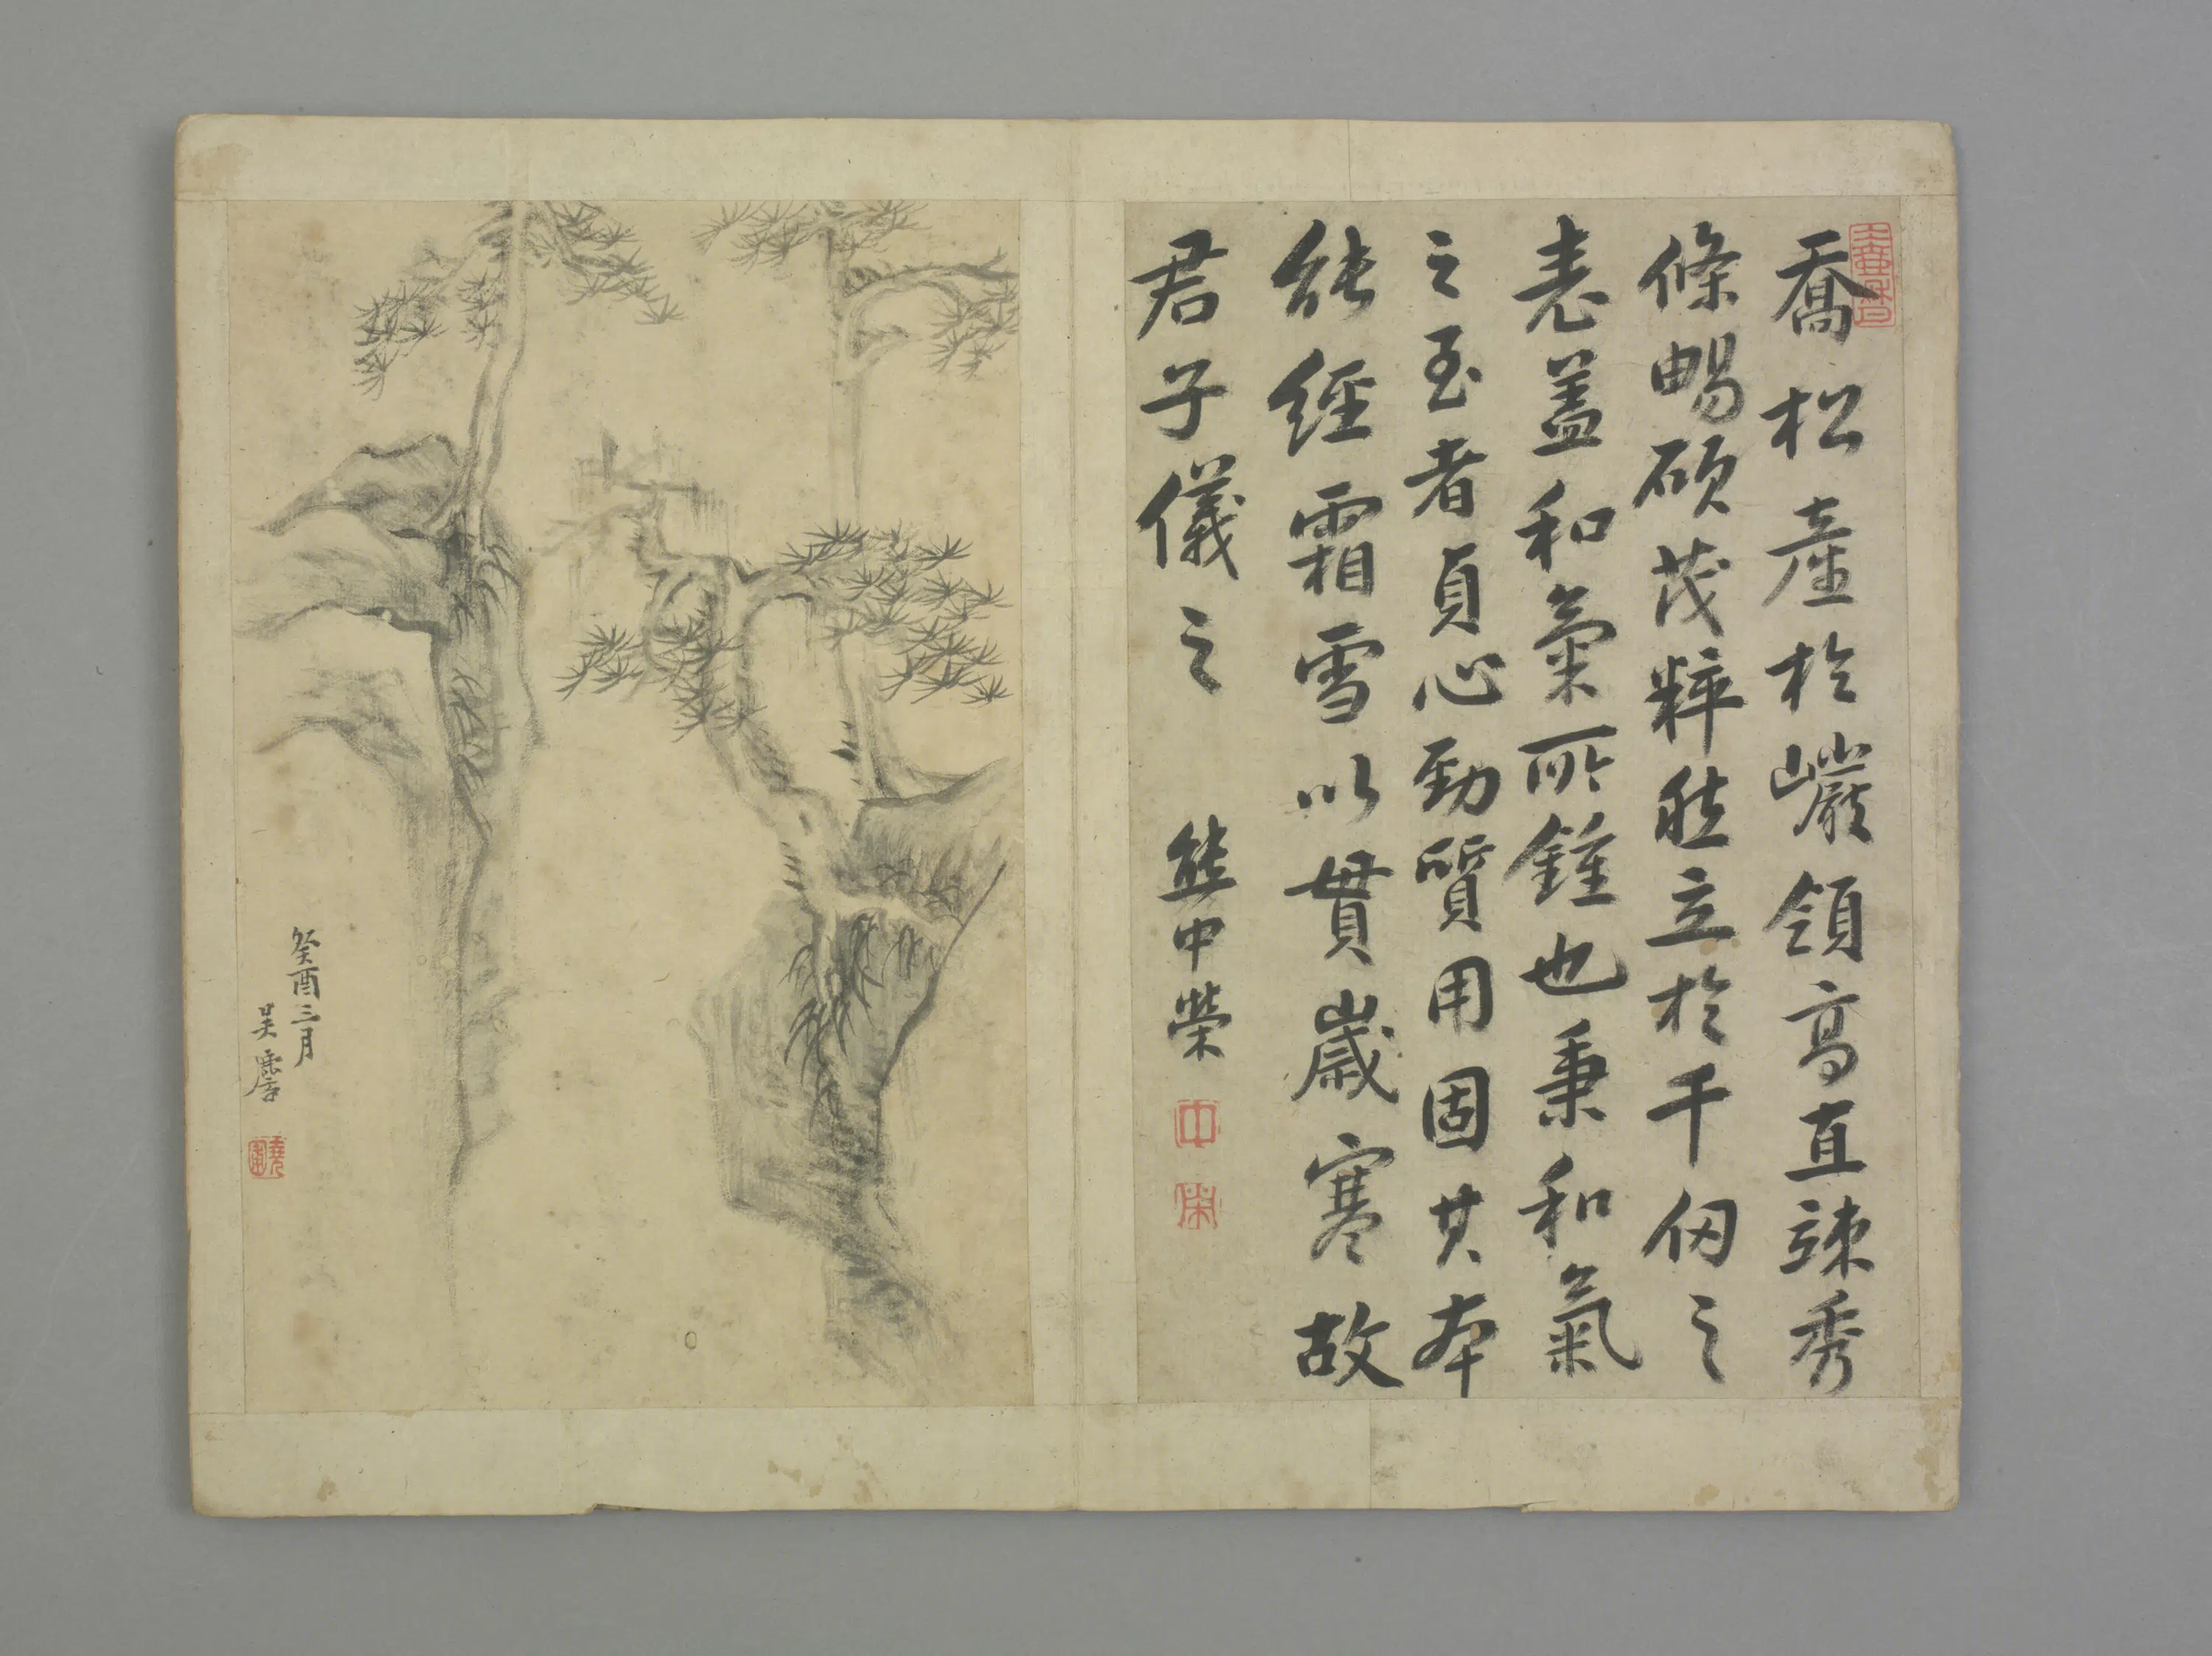 喬松產於巖領高直竦秀
條暢碩茂粹然立於千仞之
表蓋和氣所鍾也秉和氣
之至者貞心勁質用固其本
能經霜雪以貫歲寒故
君子儀之
熊中榮
中
榮
癸酉三月
吳麐